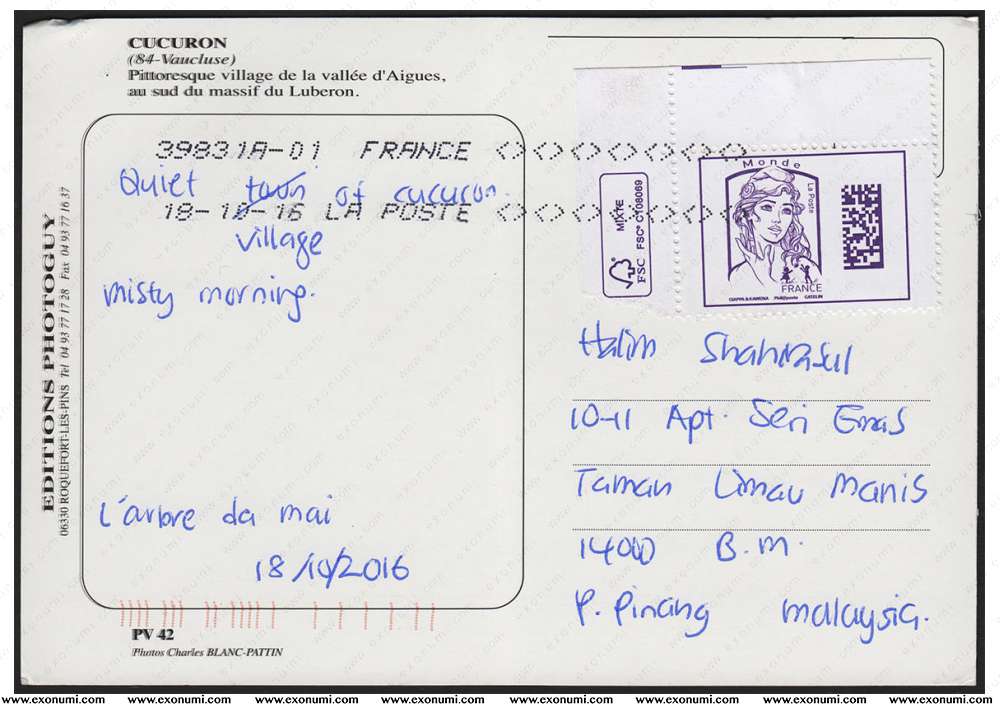 CUCURON
(84-Vaucluse)
Pittoresque village de la vallée d'Aigues,
au sud du massif du Luberon.
39831A-01 FRANCE
Quiet town of cucuron.
18-10-16 LA POSTE
village
misty morning.
L'arbre da mai
18/10/2016
EDITIONS PHOTOGUY
06330 ROQUEFORT-LES-PINS Tel 04 93 77 17 28 Fax 04 93 77 16 37
PV 42
Photos Charles BLANC-PATTIN
MIXTE
FSC FSC® C108069
Monde
La Poste
FRANCE
CIAPPA & KAWENA Phil@poste GATELIN
Halim Shahrasul
10-11 Apt. Seri Emas
Taman Limau Manis
14000 B.M.
P. Pinang malaysia.
www.exonumi.com www.exonumi.com www.exonumi.com www.exonumi.com www.exonumi.com www.exonumi.com www.exonumi.com www.exonumi.com www.exonumi.com